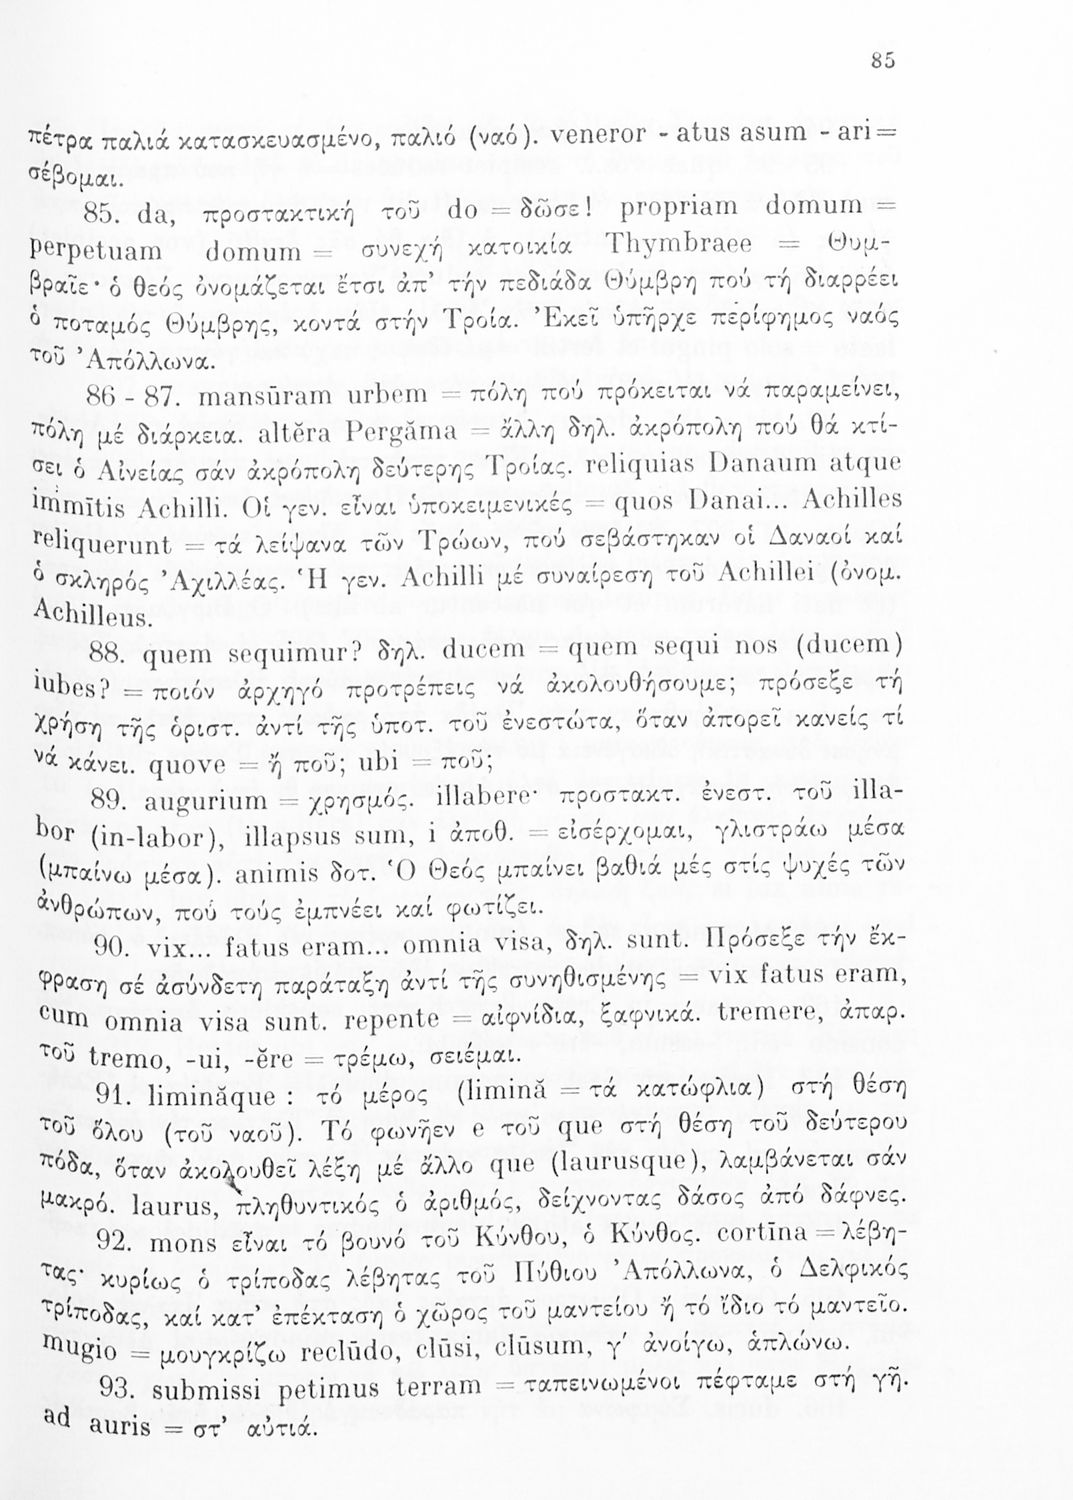 85
πέτρα παλιά κατασκευασμένο, παλιό (ναό). veneror - atus asum - ari =
σέβομαι.
85. da, προστακτική τοῦ do = δῶσε! propriam domum =
perpetuam domum = συνεχή κατοικία Thymbraee = Θυμ-
βραῖε· ὁ θεός ὀνομάζεται ἔτσι ἀπ’ τήν πεδιάδα Θύμβρη πού τή διαρρέει
ὁ ποταμός Θύμβρης, κοντά στήν Τροία. Ἐκεῖ ὑπῆρχε περίφημος ναός
τοῦ Ἀπόλλωνα.
86 - 87. mansūram urbem = πόλη πού πρόκειται νά παραμείνει,
πόλη μέ διάρκεια. altĕra Pergăma = ἄλλη δηλ. ἀκρόπολη πού θά κτί-
σει ὁ Αἰνείας σάν ἀκρόπολη δεύτερης Τροίας. reliquias Danaum atque
immītis Achilli. Οἱ γεν. εἶναι ὑποκειμενικές = quos Danai... Achilles
reliquerunt = τά λείψανα τῶν Τρώων, πού σεβάστηκαν οἱ Δαναοί καί
ὁ σκληρός Ἀχιλλέας. Ἡ γεν. Achilli μέ συναίρεση τοῦ Achillei (ὀνομ.
Achilleus.
88. quem sequimur? δηλ. ducem = quem sequi nos (ducem)
iubes? = ποιόν ἀρχηγό προτρέπεις νά ἀκολουθήσουμε; πρόσεξε τή
χρήση τῆς ὁριστ. ἀντί τῆς ὑποτ. τοῦ ἐνεστώτα, ὅταν ἀπορεῖ κανείς τί
νά κάνει. quove = ἤ ποῦ; ubi = ποῦ;
89. augurium = χρησμός. illabere· προστακτ. ἐνεστ. τοῦ illa-
bor (in-labor), illapsus sum, i ἀποθ. = εἰσέρχομαι, γλιστράω μέσα
(μπαίνω μέσα). animis δοτ. Ὁ Θεός μπαίνει βαθιά μές στίς ψυχές τῶν
ἀνθρώπων, πού τούς ἐμπνέει καί φωτίζει.
90. vix... fatus eram... omnia visa, δηλ. sunt. Πρόσεξε τήν ἔκ-
φραση σέ ἀσύνδετη παράταξη ἀντί τῆς συνηθισμένης = vix fatus eram,
cum omnia visa sunt. repente = αἰφνίδια, ξαφνικά. tremere, ἀπαρ.
τοῦ tremo, -ui, -ĕre = τρέμω, σειέμαι.
91. liminăque : τό μέρος (limină = τά κατώφλια) στή θέση
τοῦ ὅλου (τοῦ ναοῦ). Τό φωνῆεν e τοῦ que στή θέση τοῦ δεύτερου
πόδα, ὅταν ἀκολουθεῖ λέξη μέ ἄλλο que (laurusque), λαμβάνεται σάν
μακρό. laurus, πληθυντικός ὁ ἀριθμός, δείχνοντας δάσος ἀπό δάφνες.
92. mons εἶναι τό βουνό τοῦ Κύνθου, ὁ Κύνθος. cortīna = λέβη-
τας· κυρίως ὁ τρίποδας λέβητας τοῦ Πύθιου Ἀπόλλωνα, ὁ Δελφικός
τρίποδας, καί κατ’ ἐπέκταση ὁ χῶρος τοῦ μαντείου ἤ τό ἴδιο τό μαντεῖο.
mugio = μουγκρίζω reclūdo, clūsi, clūsum, γ′ ἀνοίγω, ἁπλώνω.
93. submissi petimus terram = ταπεινωμένοι πέφταμε στή γῆ.
ad auris = στ’ αὐτιά.